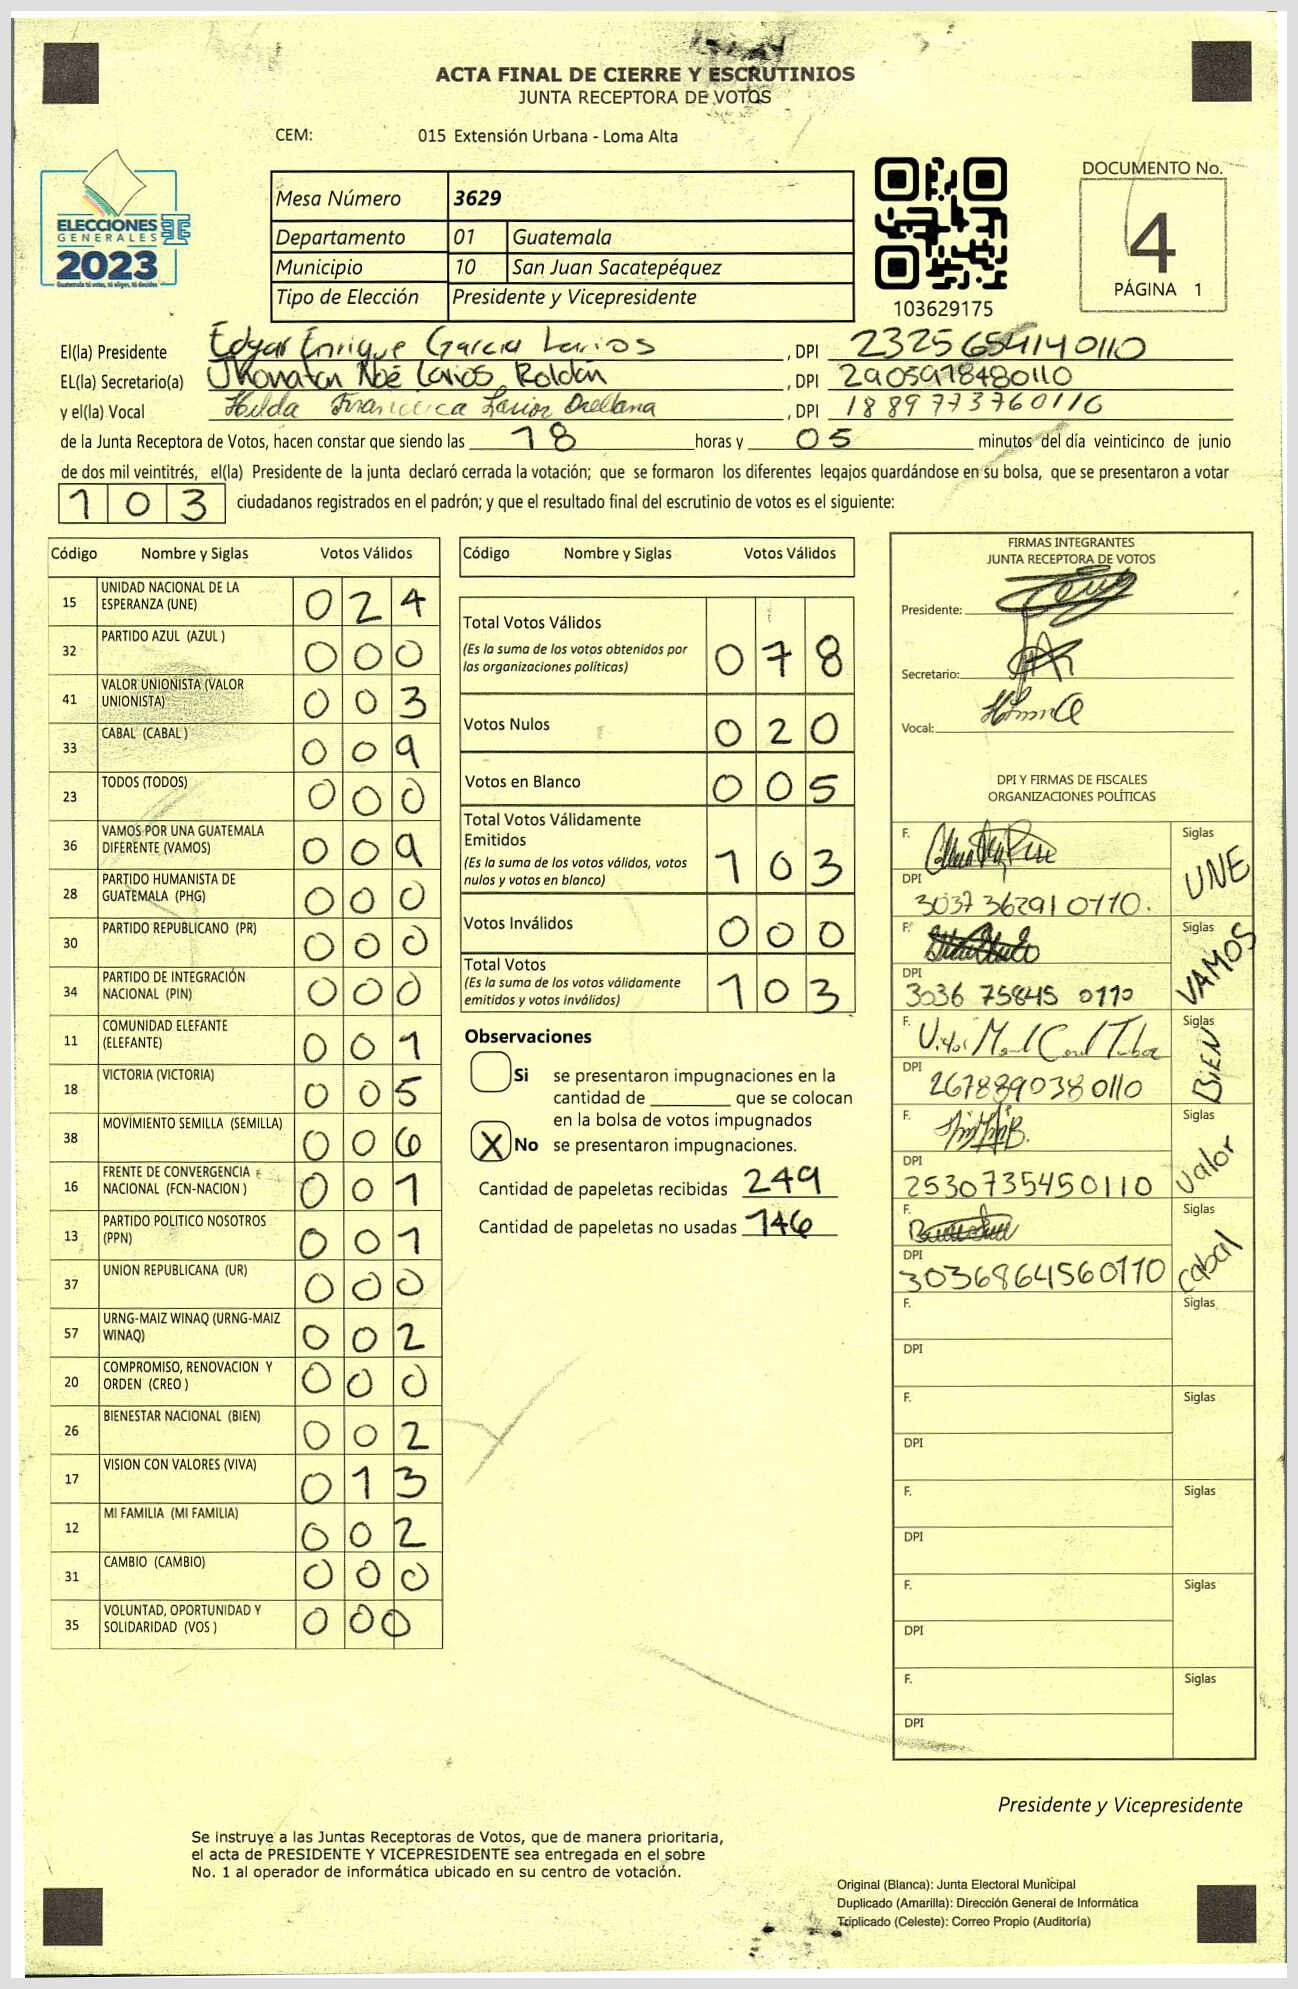 ACTA FINAL DE CIERRE Y ESCRUTINIOS
JUNTA RECEPTORA DE VOTOS
CEM: 015 Extensión Urbana - Loma Alta
ELECCIONES
GENERALES
2023
Guatemala tú votas, tú eliges, tú decides
Mesa Número 3629
Departamento 01 Guatemala
Municipio 10 San Juan Sacatepéquez
Tipo de Elección Presidente y Vicepresidente
103629175
DOCUMENTO No.
4
PÁGINA 1
El(la) Presidente Edgar Enrique Garcia Larios, DPI 2325654140110
EL(la) Secretario(a) Jhonatan Noé Larios Roldán, DPI 2905978480110
y el(la) Vocal Hilda Francisca Larios Orellana, DPI 1889773760110
de la Junta Receptora de Votos, hacen constar que siendo las 18 horas y 05 minutos del día veinticinco de junio
de dos mil veintitrés, el(la) Presidente de la junta declaró cerrada la votación; que se formaron los diferentes legajos quardándose en su bolsa, que se presentaron a votar
103 ciudadanos registrados en el padrón; y que el resultado final del escrutinio de votos es el siguiente:
Código Nombre y Siglas Votos Válidos
15 UNIDAD NACIONAL DE LA ESPERANZA (UNE) 024
32 PARTIDO AZUL (AZUL ) 000
41 VALOR UNIONISTA (VALOR UNIONISTA) 003
33 CABAL (CABAL ) 009
23 TODOS (TODOS) 000
36 VAMOS POR UNA GUATEMALA DIFERENTE (VAMOS) 009
28 PARTIDO HUMANISTA DE GUATEMALA (PHG) 000
30 PARTIDO REPUBLICANO (PR) 000
34 PARTIDO DE INTEGRACIÓN NACIONAL (PIN) 000
11 COMUNIDAD ELEFANTE (ELEFANTE) 001
18 VICTORIA (VICTORIA) 005
38 MOVIMIENTO SEMILLA (SEMILLA) 006
16 FRENTE DE CONVERGENCIA NACIONAL (FCN-NACION ) 001
13 PARTIDO POLITICO NOSOTROS (PPN) 001
37 UNION REPUBLICANA (UR) 000
57 URNG-MAIZ WINAQ (URNG-MAIZ WINAQ) 002
20 COMPROMISO, RENOVACION Y ORDEN (CREO ) 000
26 BIENESTAR NACIONAL (BIEN) 002
17 VISION CON VALORES (VIVA) 013
12 MI FAMILIA (MI FAMILIA) 002
31 CAMBIO (CAMBIO) 000
35 VOLUNTAD, OPORTUNIDAD Y SOLIDARIDAD (VOS ) 000
Código Nombre y Siglas Votos Válidos
Total Votos Válidos 078
(Es la suma de los votos obtenidos por
las organizaciones políticas)
Votos Nulos 020
Votos en Blanco 005
Total Votos Válidamente
Emitidos 103
(Es la suma de los votos válidos, votos
nulos y votos en blanco)
Votos Inválidos 000
Total Votos 103
(Es la suma de los votos válidamente
emitidos y votos inválidos)
Observaciones
Si se presentaron impugnaciones en la
cantidad de ________ que se colocan
en la bolsa de votos impugnados
X No se presentaron impugnaciones.
Cantidad de papeletas recibidas 249
Cantidad de papeletas no usadas 146
FIRMAS INTEGRANTES
JUNTA RECEPTORA DE VOTOS
Presidente:
Secretario:
Vocal:
DPI Y FIRMAS DE FISCALES
ORGANIZACIONES POLÍTICAS
F. Siglas UNE
DPI 3037362910110.
F. Siglas VAMOS
DPI 3036 75845 0110
F. Siglas BIEN
DPI 2678890380110
F. Siglas Valor
DPI 2530735450110
F. Siglas Cabal
DPI 3036864560110
F. Siglas
DPI
F. Siglas
DPI
F. Siglas
DPI
F. Siglas
DPI
F. Siglas
DPI
Presidente y Vicepresidente
Se instruye a las Juntas Receptoras de Votos, que de manera prioritaria,
el acta de PRESIDENTE Y VICEPRESIDENTE sea entregada en el sobre
No. 1 al operador de informática ubicado en su centro de votación.
Original (Blanca): Junta Electoral Municipal
Duplicado (Amarilla): Dirección General de Informática
Triplicado (Celeste): Correo Propio (Auditoría)